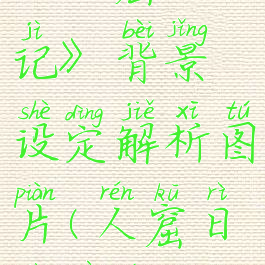 jì bèi jǐng
记》背景
shè dìng jiě xī tú
设定解析图
piàn rén kū rì
片(人窟日